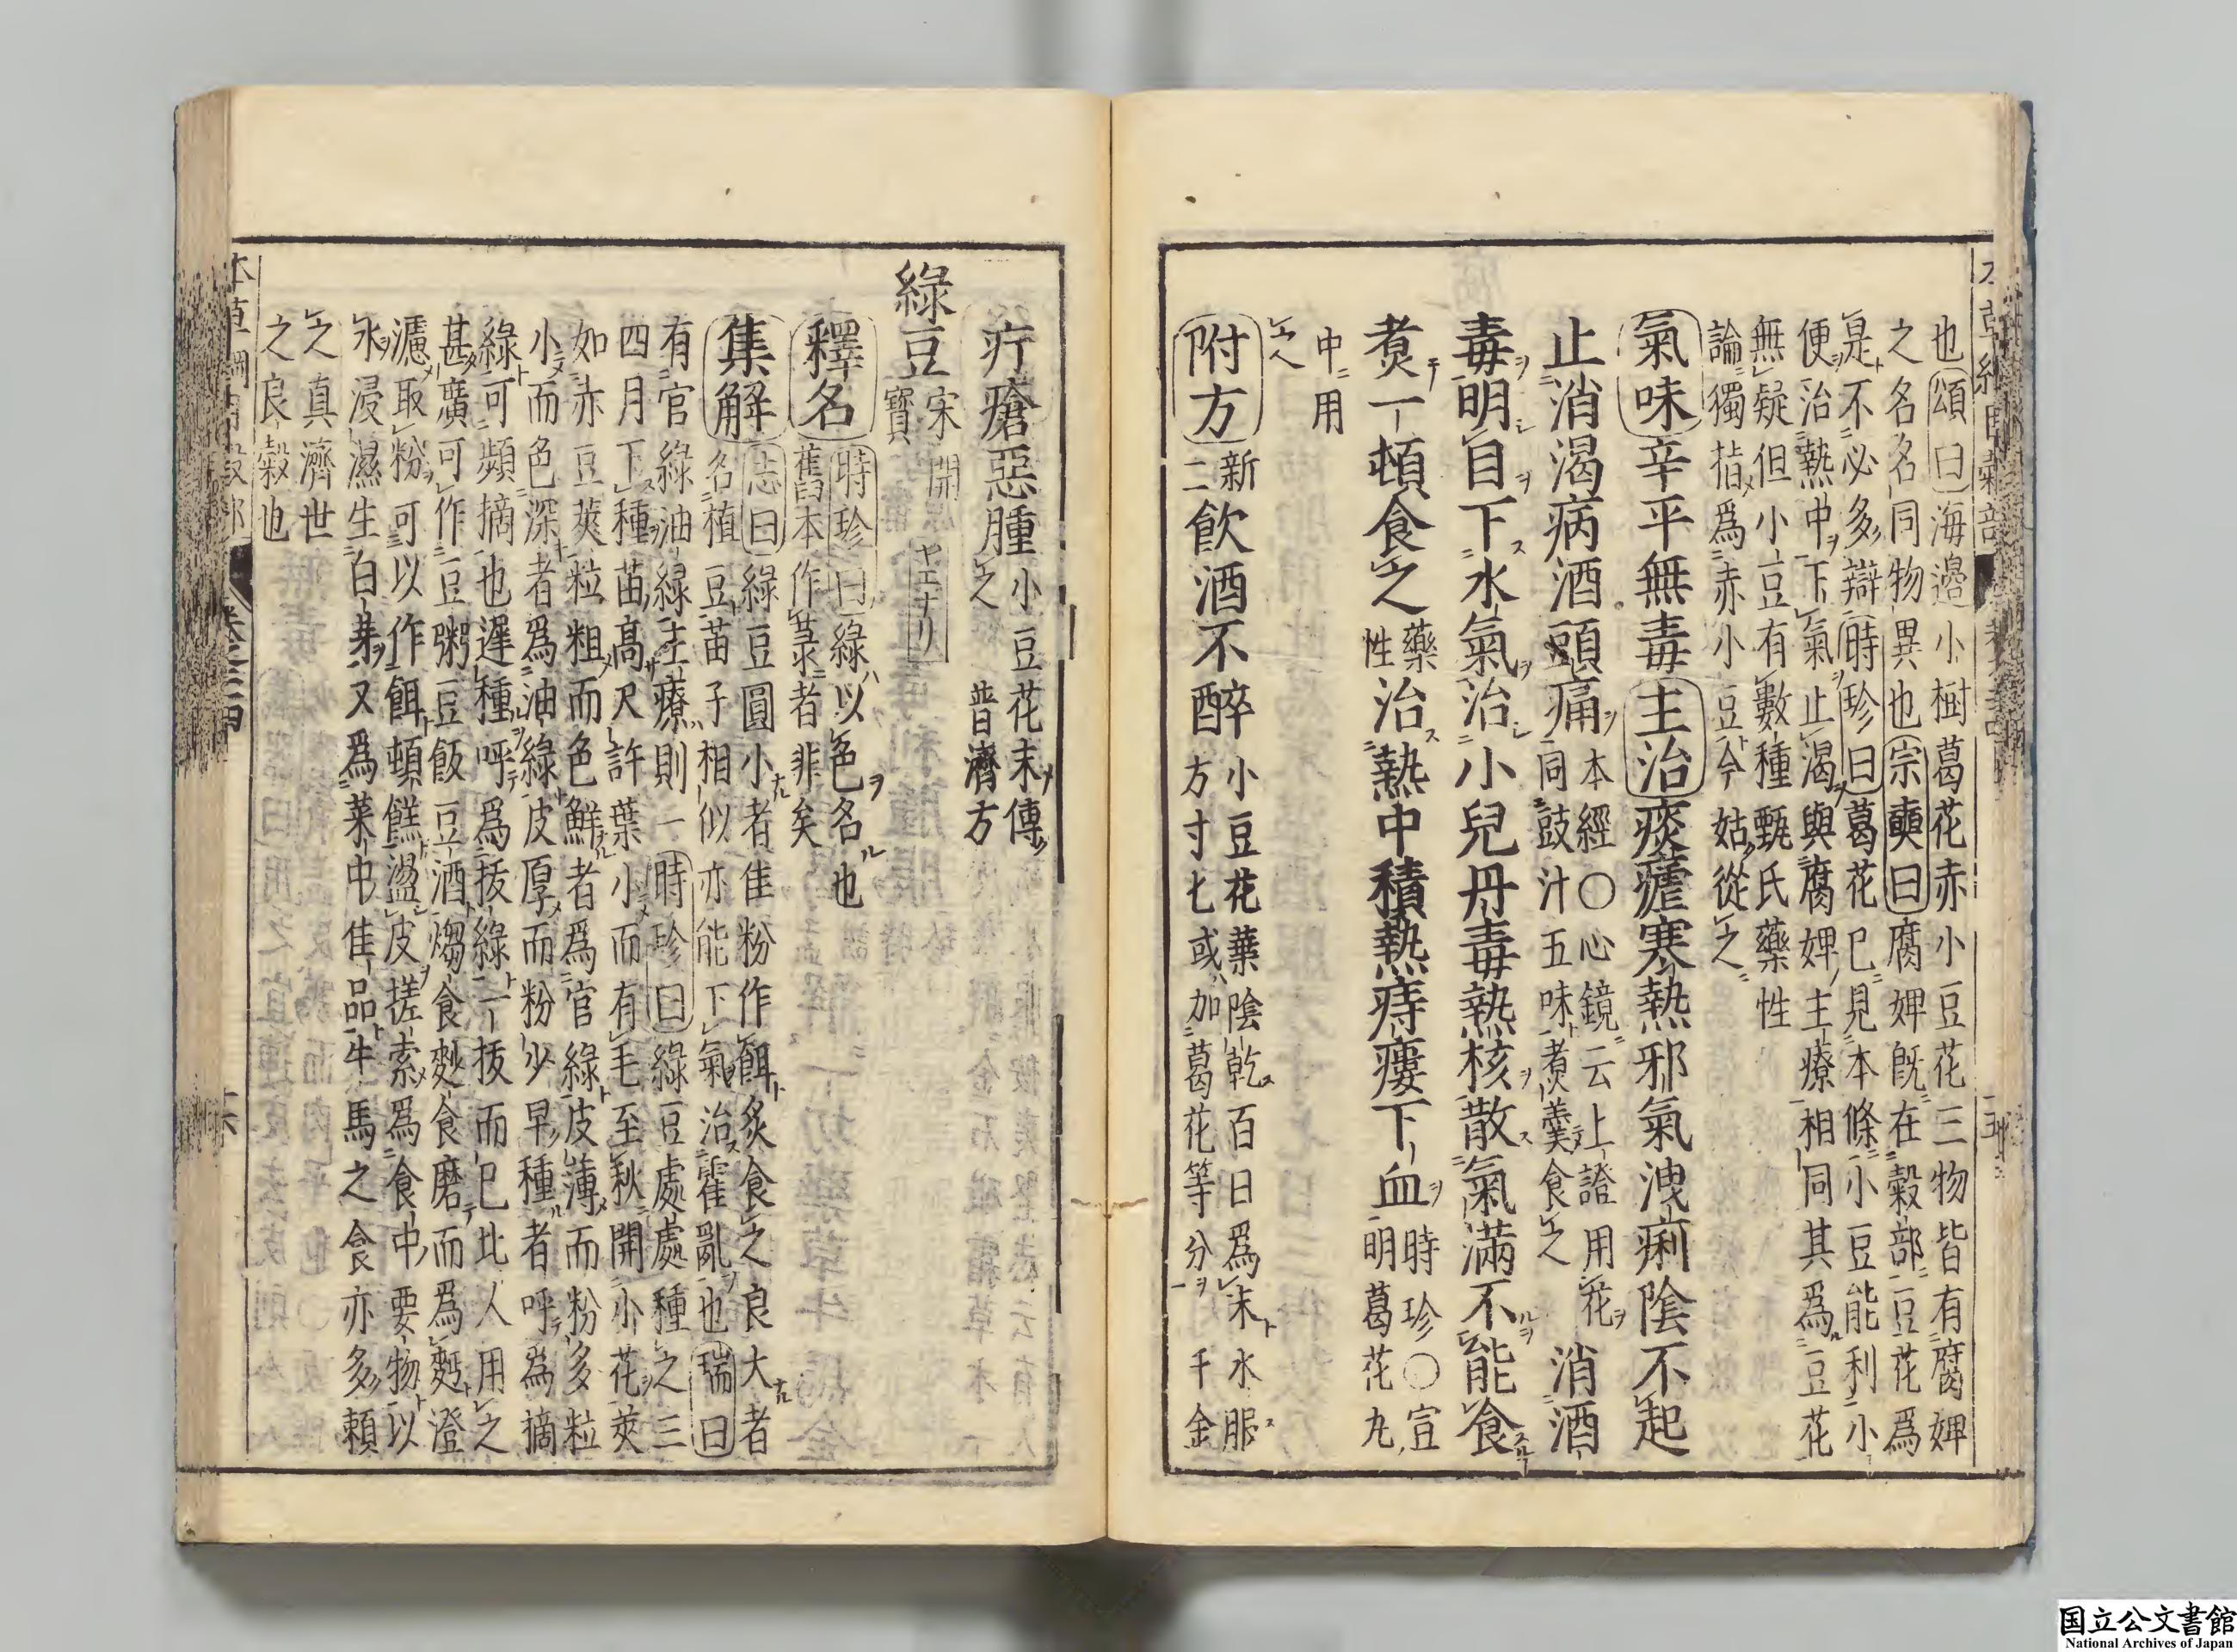 也頌曰海邊小樹葛花赤小豆花三物皆有腐婢
之名名同物異也宗奭曰腐婢既在穀部豆花爲
是不必多辯時珍曰葛花已見本條小豆能利小
便治熱中下氣止渴與腐婢主療相同其爲豆花
無疑但小豆有數種甄氏藥性
論獨指爲赤小豆今姑從之
氣味辛平無毒主治痎瘧寒熱邪氣洩痢陰不起
止消渴病酒頭痛本經〇心鏡云上證用花
同豉汁五味煮羹食之
消酒
毒明目下水氣治小兒丹毒熱核散氣滿不能食
煮一頓食之藥
性
治熱中積熱痔瘻下血時珍〇宣
明葛花丸
中用
之
附方新
二
飲酒不醉小豆花葉陰乾百日爲末水服
方寸七或加葛花等分千金
疔瘡惡腫小豆花末傅
之普濟方
綠豆宋開
寶
ヤエナリ
釋名時珍曰綠以色名也
舊本作菉者非矣
集解志曰綠豆圓小者佳粉作餌炙食之良大者
名稙豆苗子相似亦能下氣治霍亂也瑞曰
有官綠油綠主療則一時珍曰綠豆處處種之三
四月下種苗高尺許葉小而有毛至秋開小花莢
如赤豆莢粒粗而色鮮者爲官綠皮薄而粉多粒
小而色深者爲油綠皮厚而粉少早種者呼爲摘
綠可頻摘也遲種呼爲拔綠一拔而已北人用之
甚廣可作豆粥豆飯豆酒煼食麨食磨而爲麪澄
濾取粉可以作餌頓餻盪皮搓索爲食中要物以
水浸濕生白芽又爲菜中佳品牛馬之食亦多賴
之真濟世
之良穀也
本草綱目穀部
卷二十四
十六
国立公文書館
National Archives of Japan